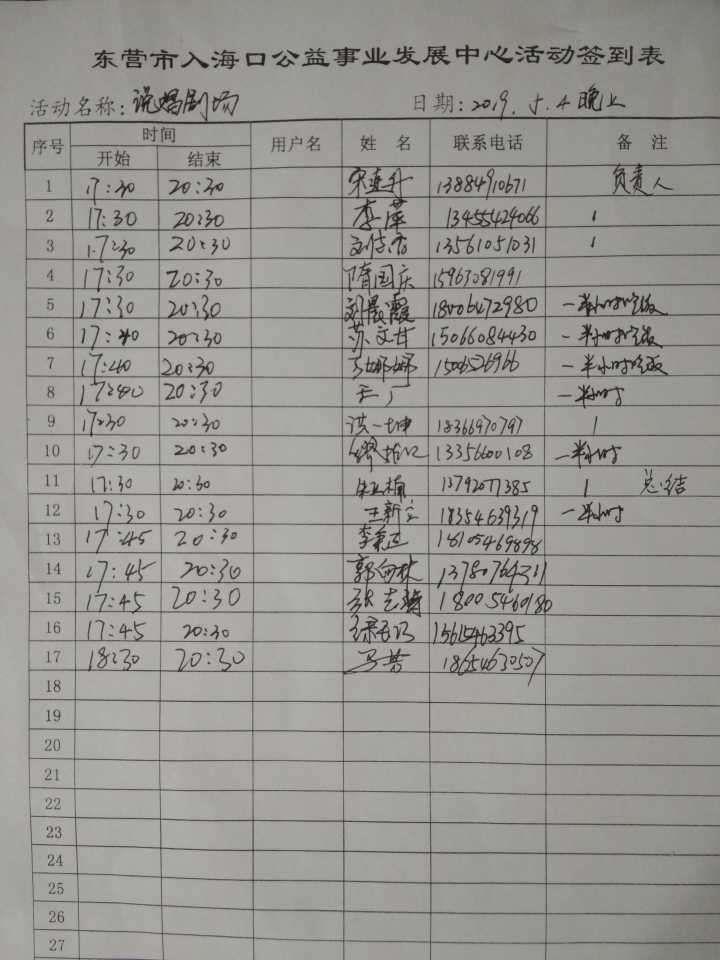 东营市入海口公益事业发展中心活动签到表
活动名称：说唱剧场 日期：2019.5.4晚上
序号 时间 用户名 姓名 联系电话 备注
开始 结束
1 17:30 20:30 13884910671 负责人
2 17:30 20:30 李萍 13455424066 1
3 17:30 20:30 13561051031 1
4 17:30 20:30 隋国庆 15963081991
5 17:30 20:30 刘晨霞 18006472980 一半小时
6 17:40 20:30 苏文甘 15066084430 一半小时
7 17:40 20:30 一半小时
8 17:40 20:30 王广 一半小时
9 17:30 20:30 洪一坤 18366970797 1
10 17:30 20:30 13356600108 一半小时
11 17:30 20:30 13792077385 1 总结
12 17:30 20:30 王新立 18354639319 一半小时
13 17:45 20:30 18105469898
14 17:45 20:30 郭向林
15 17:45 20:30 18005460180
16 17:45 20:30 15615463395
17 18:30 20:30 马苦 18654630507
18
19
20
21
22
23
24
25
26
27